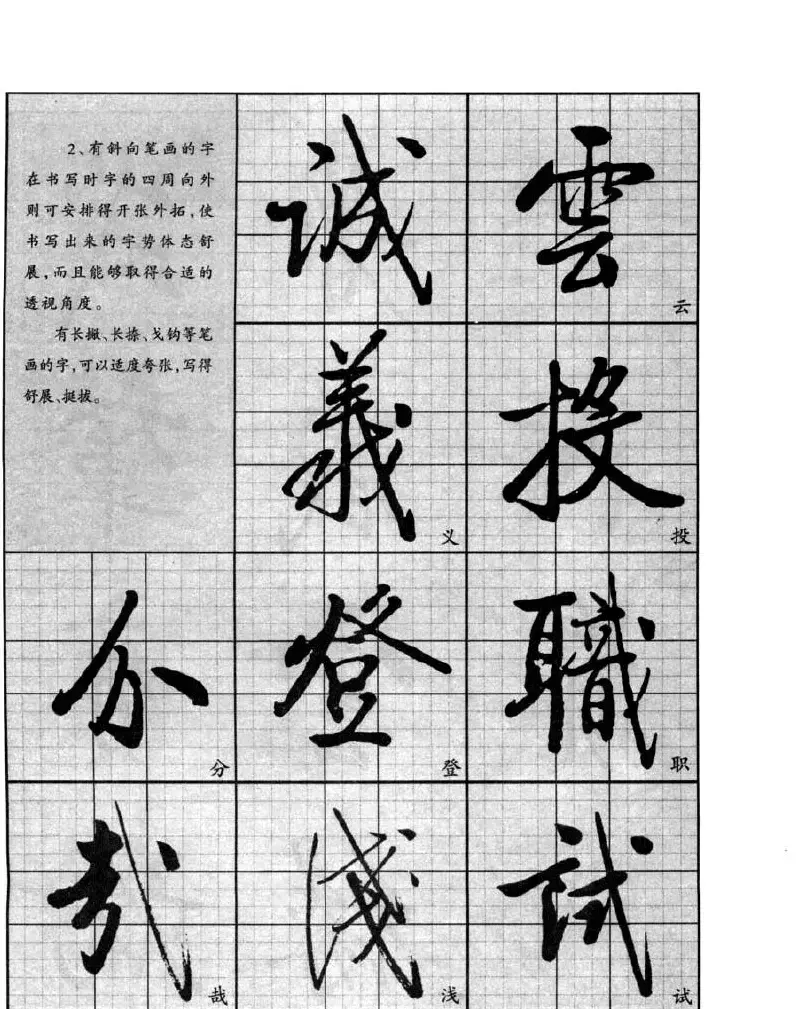 2、有斜向笔画的字
在书写时字的四周向外
则可安排得开张外拓,使
书写出来的字势体态舒
展,而且能够取得合适的
透视角度。
有长撇、长捺、戈钩等笔
画的字,可以适度夸张,写得
舒展、挺拔。
誠
雲
云
義
义
投
投
分
分
登
登
職
职
哉
哉
淺
浅
試
试